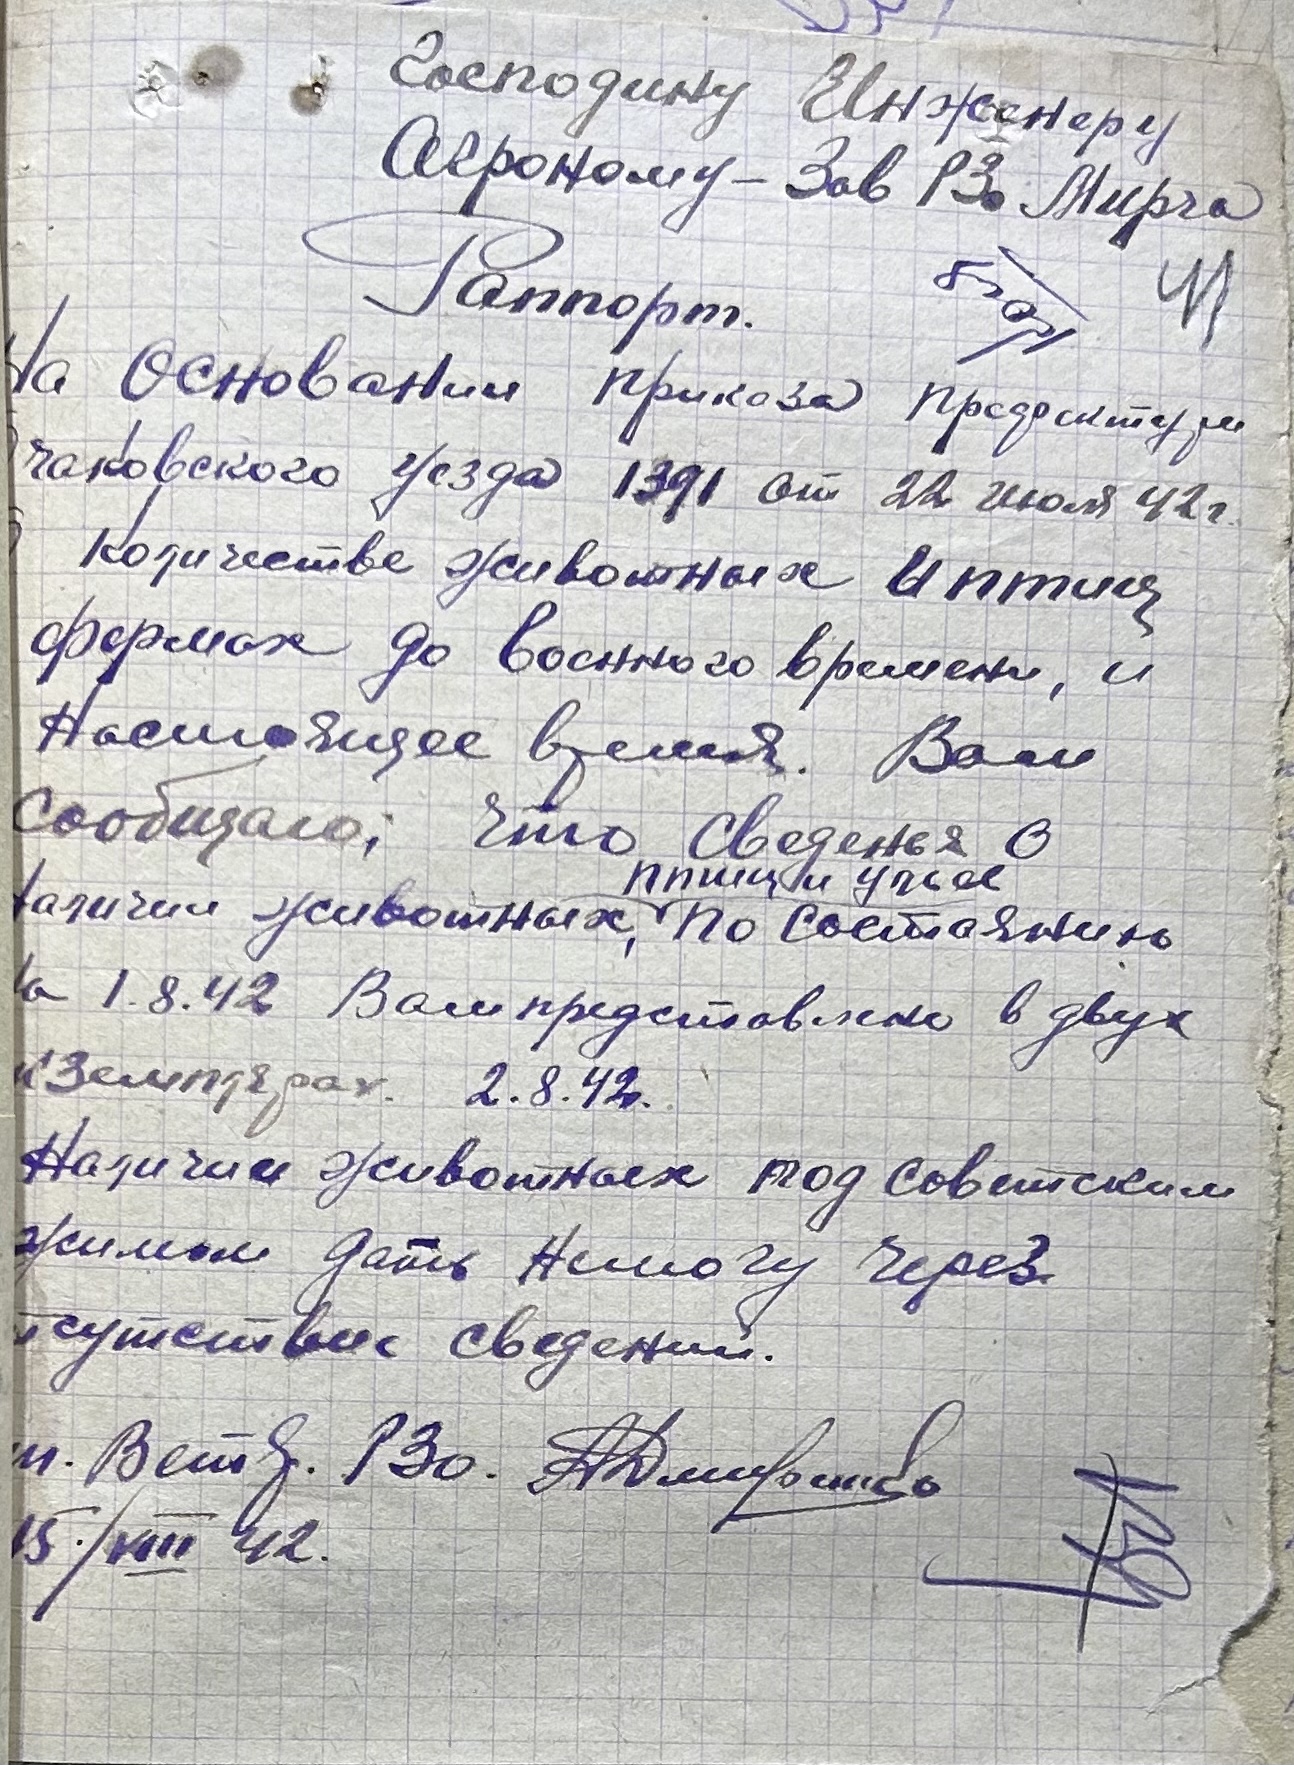 Господину Инженеру
Агроному – Зав РЗо Мирча
Раппорт.
На Основании приказа Префектуры
Очаковского уезда 1391 от 22 июля 42 г.
О количестве животных и птиц
фермах до военного времени, и
Настоящее время. Вам
Сообщаю; что сведенья о
птиц и ульев
Наличии животных, по состаянию
На 1.8.42 Вам представлено в двух
кземплярах. 2.8.42г.
Наличии животных под советским
жимом дать немогу через
тсутствие сведений.
Вет Вр. РЗо.
15./VIII 42.